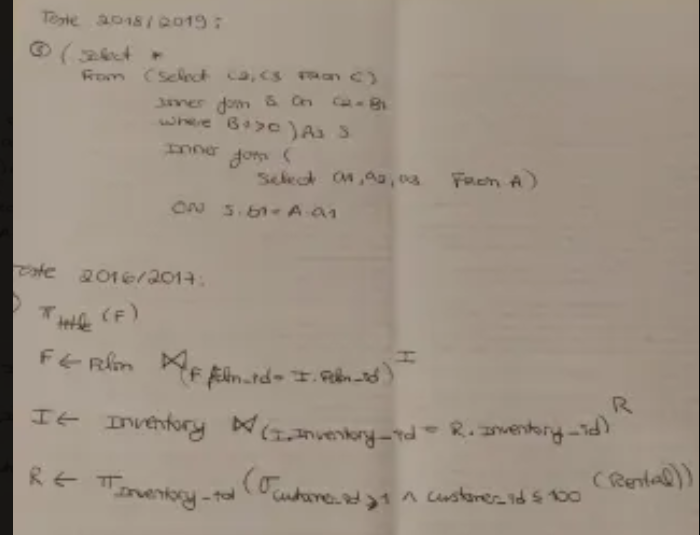 Teste 2018/2019:
⑤ ( Select *
From (Select C2, C3 From C)
Inner Join B On C2=B1
where B1>0 ) As S
Inner Join (
Select a1, a2, a3 From A)
ON S.b1=A.a1
Teste 2016/2017:
π title (F)
F ← Film ⋈ (F.film_id = I.film_id) I
I ← Inventory ⋈ (I.Inventory_id = R.Inventory_id) R
R ← π Inventory_id (σ customer_id ≥ 1 ∧ customer_id ≤ 100 (Rental))